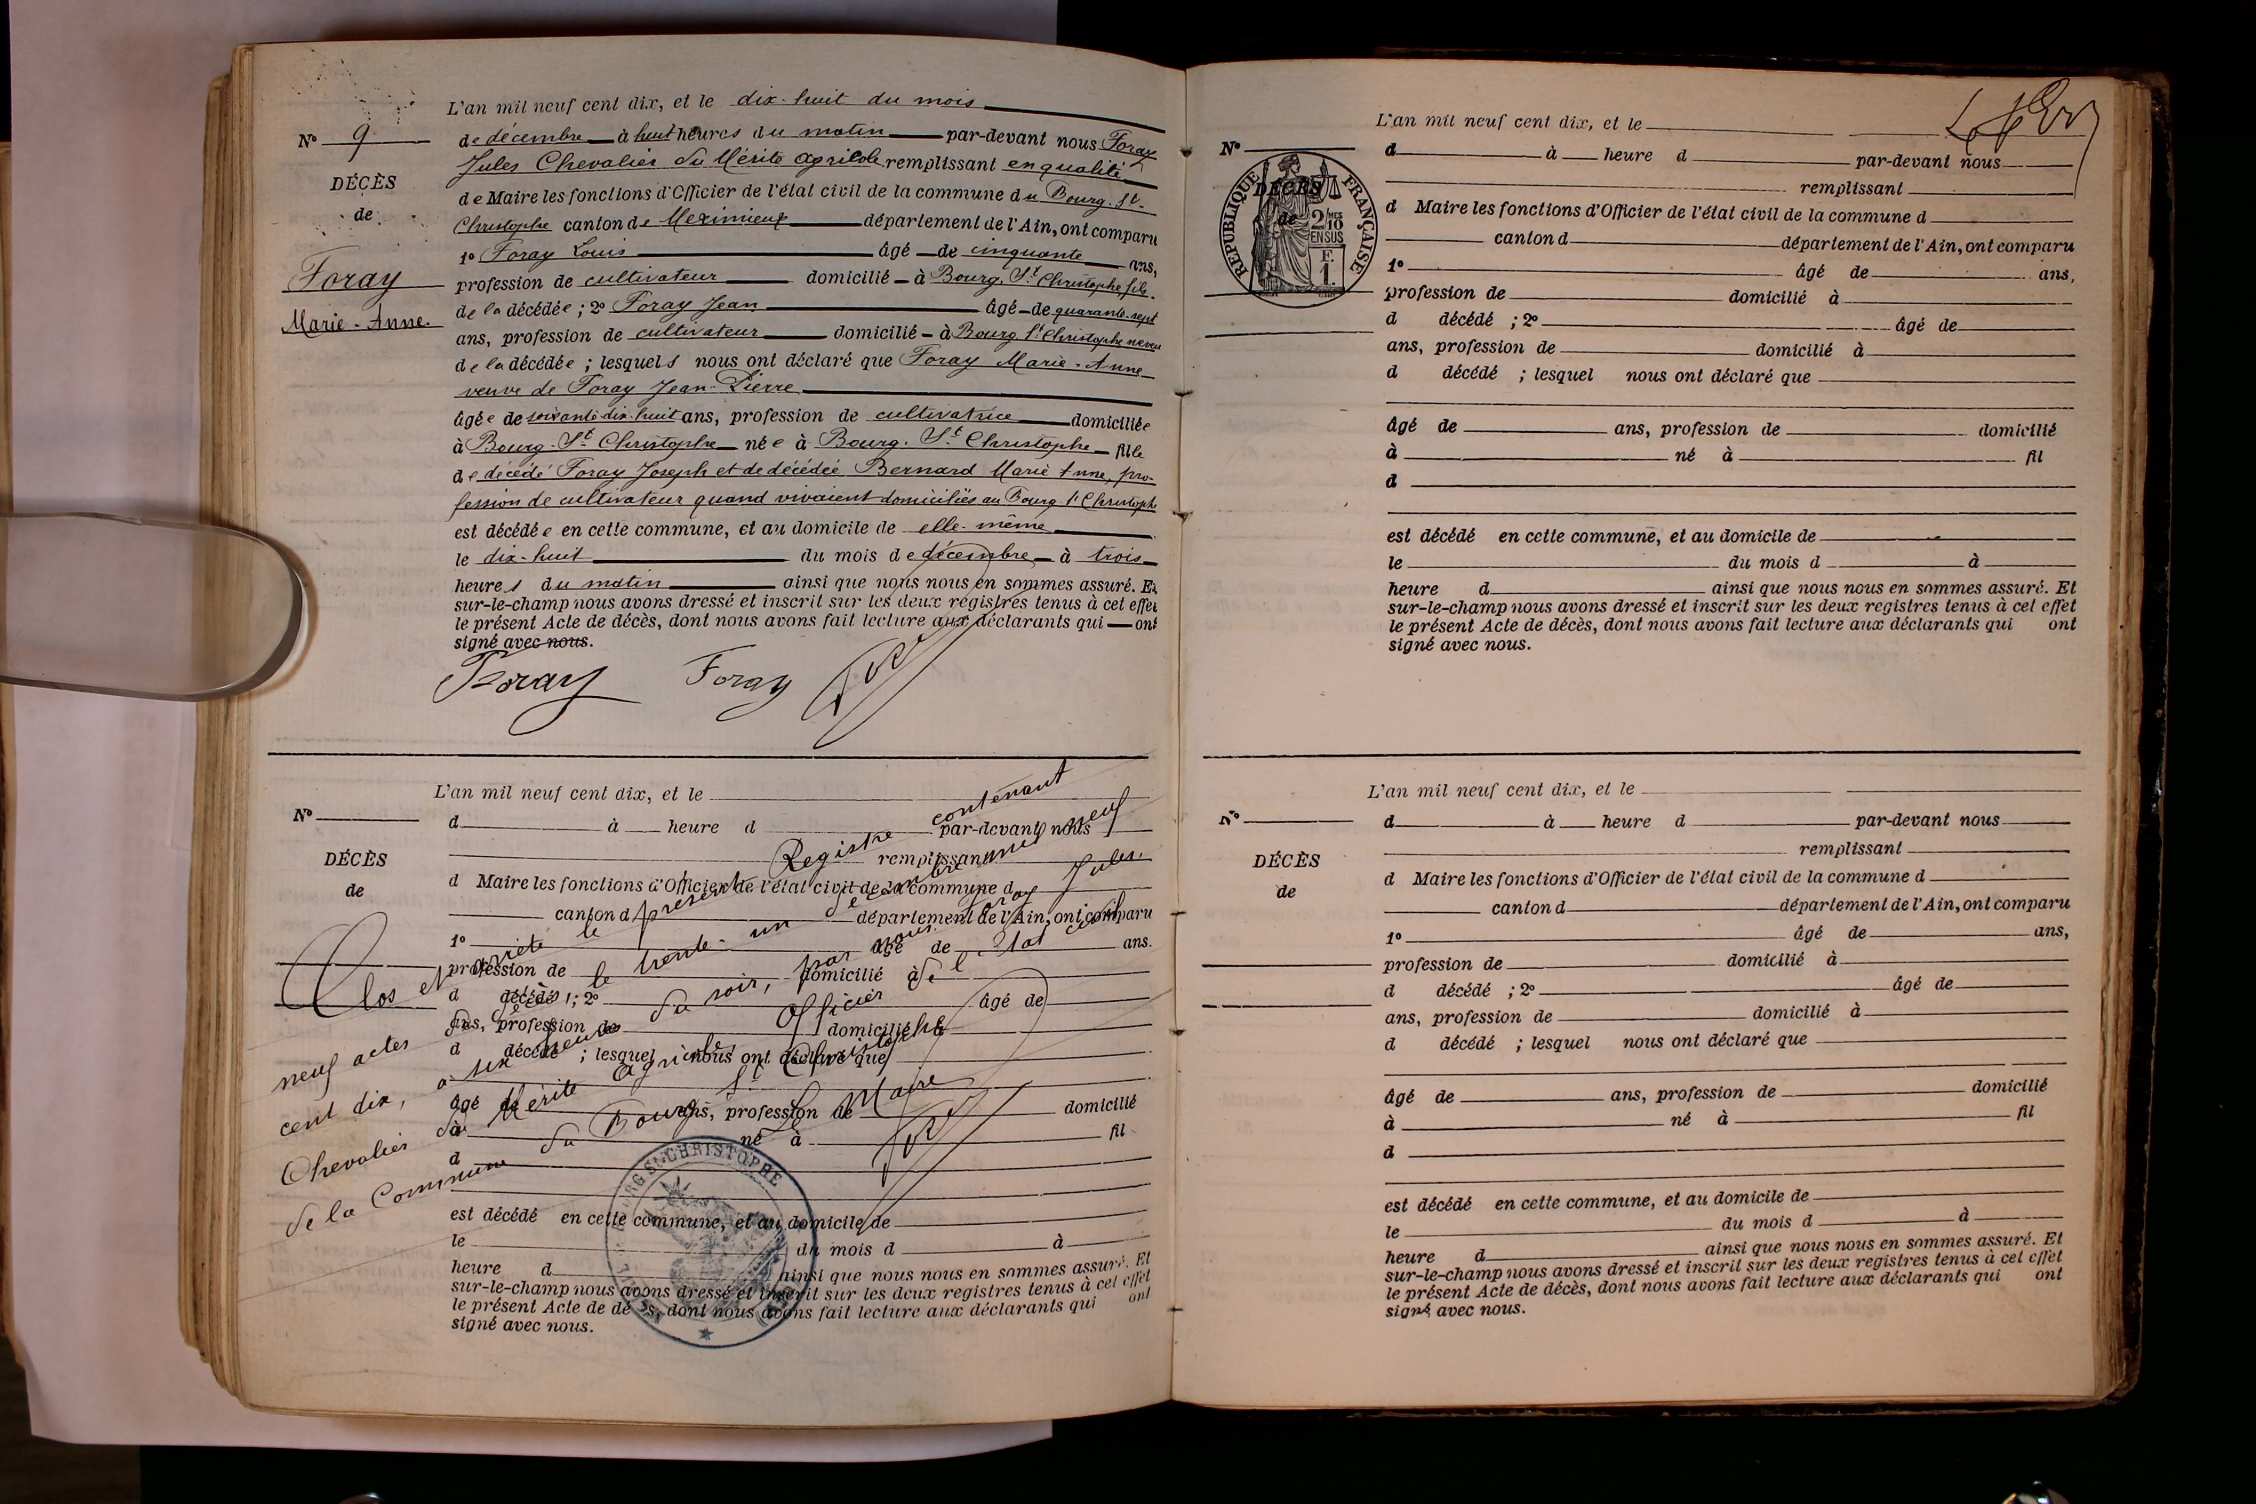 L'an mil neuf cent dix, et le dix-huit du mois
N° 9
de décembre à huit heures du matin par-devant nous Foray
Jules Chevalier du Mérite agricole remplissant en qualité
DÉCÈS
de
de Maire les fonctions d'Officier de l'état civil de la commune du Bourg-St-
Christophe canton de Meximieux département de l'Ain, ont comparu
1° Foray Louis âgé de cinquante ans,
Foray
profession de cultivateur domicilié à Bourg-St Christophe, fils
Marie-Anne.
de la décédée ; 2° Foray Jean âgé de quarante-sept
ans, profession de cultivateur domicilié à Bourg St Christophe neveu
de la décédée ; lesquels nous ont déclaré que Foray Marie-Anne
veuve de Foray Jean-Pierre
âgée de soixante-dix-huit ans, profession de cultivatrice domiciliée
à Bourg-St Christophe née à Bourg-St Christophe fille
de décédé Foray Joseph et de décédée Bernard Marie Anne, pro-
fession de cultivateur quand vivaient domiciliés au Bourg St Christophe
est décédée en cette commune, et au domicile de elle-même
le dix-huit du mois de décembre à trois
heures du matin ainsi que nous nous en sommes assuré. Et
sur-le-champ nous avons dressé et inscrit sur les deux registres tenus à cet effet
le présent Acte de décès, dont nous avons fait lecture aux déclarants qui ont
signé avec nous.
Foray Foray
L'an mil neuf cent dix, et le
N°
d à heure d par-devant nous
remplissant
DÉCÈS
de
d Maire les fonctions d'Officier de l'état civil de la commune d
canton d département de l'Ain, ont comparu
1° âgé de ans.
profession de domicilié à
d décédé ; 2° âgé de
ans, profession de domicilié à
d décédé ; lesquel nous ont déclaré que
âgé de ans, profession de domicilié
à né à fil
d
est décédé en cette commune, et au domicile de
le du mois d à
heure d ainsi que nous nous en sommes assuré. Et
sur-le-champ nous avons dressé et inscrit sur les deux registres tenus à cet effet
le présent Acte de décès, dont nous avons fait lecture aux déclarants qui ont
signé avec nous.
Clos et arrêté le présent Registre contenant
neuf actes de décès, le trente-un décembre mil neuf
cent dix, à six heures du soir, par nous Foray Jules,
Chevalier du Mérite agricole, Officier de l'Etat civil
de la Commune du Bourg St Christophe
Le Maire
BOURG ST CHRISTOPHE
L'an mil neuf cent dix, et le
N°
d à heure d par-devant nous
remplissant
RÉPUBLIQUE FRANÇAISE
2/10 MES
EN SUS
F.
1.
DÉCÈS
de
d Maire les fonctions d'Officier de l'état civil de la commune d
canton d département de l'Ain, ont comparu
1° âgé de ans,
profession de domicilié à
d décédé ; 2° âgé de
ans, profession de domicilié à
d décédé ; lesquel nous ont déclaré que
âgé de ans, profession de domicilié
à né à fil
d
est décédé en cette commune, et au domicile de
le du mois d à
heure d ainsi que nous nous en sommes assuré. Et
sur-le-champ nous avons dressé et inscrit sur les deux registres tenus à cet effet
le présent Acte de décès, dont nous avons fait lecture aux déclarants qui ont
signé avec nous.
L'an mil neuf cent dix, et le
N°
d à heure d par-devant nous
remplissant
DÉCÈS
de
d Maire les fonctions d'Officier de l'état civil de la commune d
canton d département de l'Ain, ont comparu
1° âgé de ans,
profession de domicilié à
d décédé ; 2° âgé de
ans, profession de domicilié à
d décédé ; lesquel nous ont déclaré que
âgé de ans, profession de domicilié
à né à fil
d
est décédé en cette commune, et au domicile de
le du mois d à
heure d ainsi que nous nous en sommes assuré. Et
sur-le-champ nous avons dressé et inscrit sur les deux registres tenus à cet effet
le présent Acte de décès, dont nous avons fait lecture aux déclarants qui ont
signé avec nous.